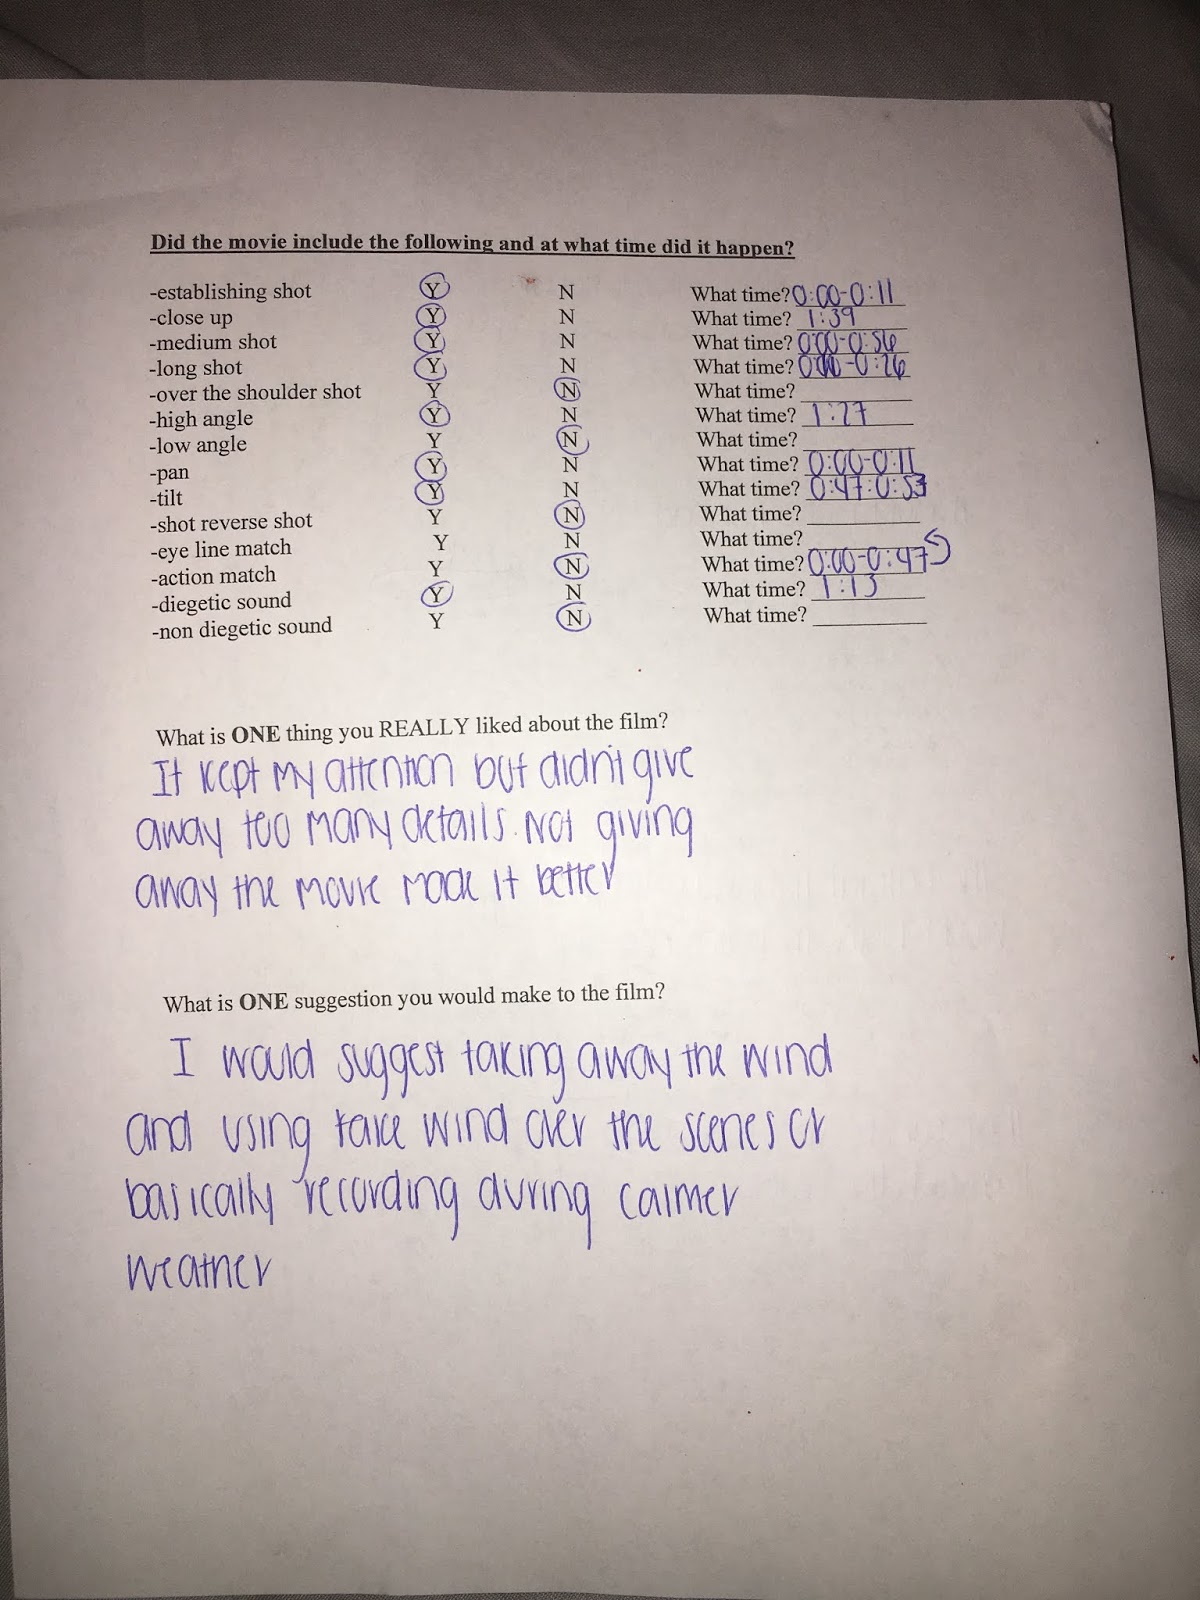 Did the movie include the following and at what time did it happen?
-establishing shot Y N What time? 0:00-0:11
-close up Y N What time? 1:39
-medium shot Y N What time? 0:00-0:56
-long shot Y N What time? 0:00-0:26
-over the shoulder shot Y N What time?
-high angle Y N What time? 1:27
-low angle Y N What time?
-pan Y N What time? 0:00-0:11
-tilt Y N What time? 0:47-0:53
-shot reverse shot Y N What time?
-eye line match Y N What time?
-action match Y N What time? 0:00-0:47
-diegetic sound Y N What time? 1:13
-non diegetic sound Y N What time?
What is ONE thing you REALLY liked about the film?
It kept my attention but didn't give
away too many details. Not giving
away the movie made it better
What is ONE suggestion you would make to the film?
I would suggest taking away the wind
and using fake wind over the scenes or
basically recording during calmer
weather